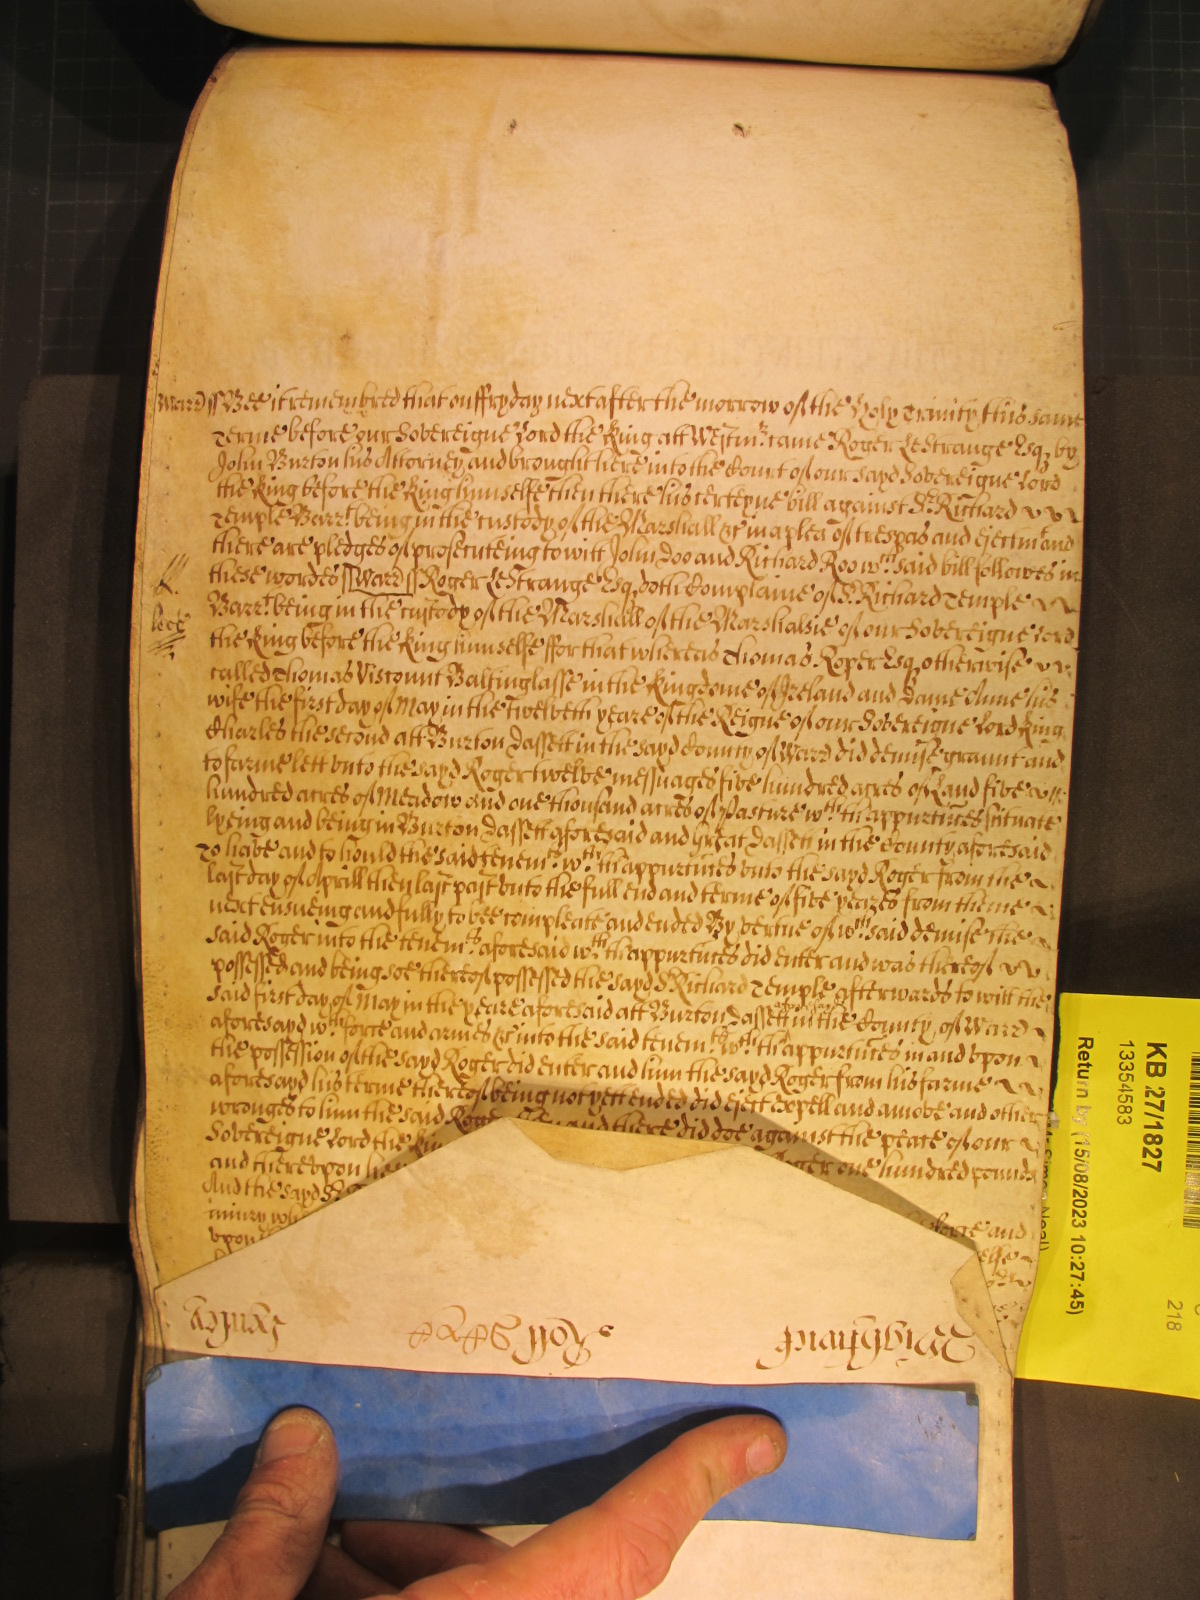 Warr ss Bee it remembred that on ffryday next after the morrow of the Holy Trinity this same
Terme before our Sovereigne Lord the King att Westmr. came Roger LeStrange Esq. by
John Burton his Attorney and brought here into the Court of our sayd Sovereigne Lord
the King before the King himselfe then there his certeyne bill against Sr. Richard
Temple Barrt. being in the custody of the Marshall &c in a plea of trespas and ejectmt. and
there are pledges of prosecuteing to witt John Doo and Richard Roo wch. said bill followes in
these wordes ss Warr ss Roger LeStrange Esq. doth Complaine of Sr. Richard Temple
Barrt. being in the custody of the Marshall of the Marshalsie of our Sovereigne Lord
the King before the King himselfe ffor that whereas Thomas Roper Esq. otherwise
called Thomas Viscount Baltinglasse in the Kingdome of Ireland and Dame Anne his
wife the first day of May in the Twelveth yeare of the Reigne of our Sovereigne Lord King
Charles the second att Burton Dassett in the sayd County of Warr did demise graunt and
to farme lett unto the sayd Roger twelve messuages five hundred acres of Land five
hundred acres of Meadow and one thousand acres of Pasture wth. thappurtnces scituate
lyeing and being in Burton Dassett aforesaid and Great Dassett in the County aforesaid
To have and to hould the said tenemts. wth. thappurtnces unto the sayd Roger from the
last day of Aprill then last past unto the full end and terme of five yeares from thence
next ensueing and fully to bee compleate and ended By vertue of wch. said demise the
said Roger into the tenemts. aforesaid wth. thappurtnces did enter and was thereof
possessed and being soe thereof possessed the sayd Sr. Richard Temple afterwards to witt the
said first day of May in the yeare aforesaid att Burton Dassett aforesaid in the County of Warr
aforesayd wth. force and armes &c into the said tenemts. wth. thappurtnces in and upon
the possession of the sayd Roger did enter and him the sayd Roger from his farme
aforesayd his terme thereof being not yett ended did eject expell and amove and other
wronges to him the said Roger then and there did doe against the peace of our
Sovereigne Lord the Kin
and thereupon Roger one hundred pounds
And the sayd Sr.
injury wh force and
upon elfe
Wightwick Roll Synley
KB 27/1827
13354583
Return by (15/08/2023 10:27:45)
218